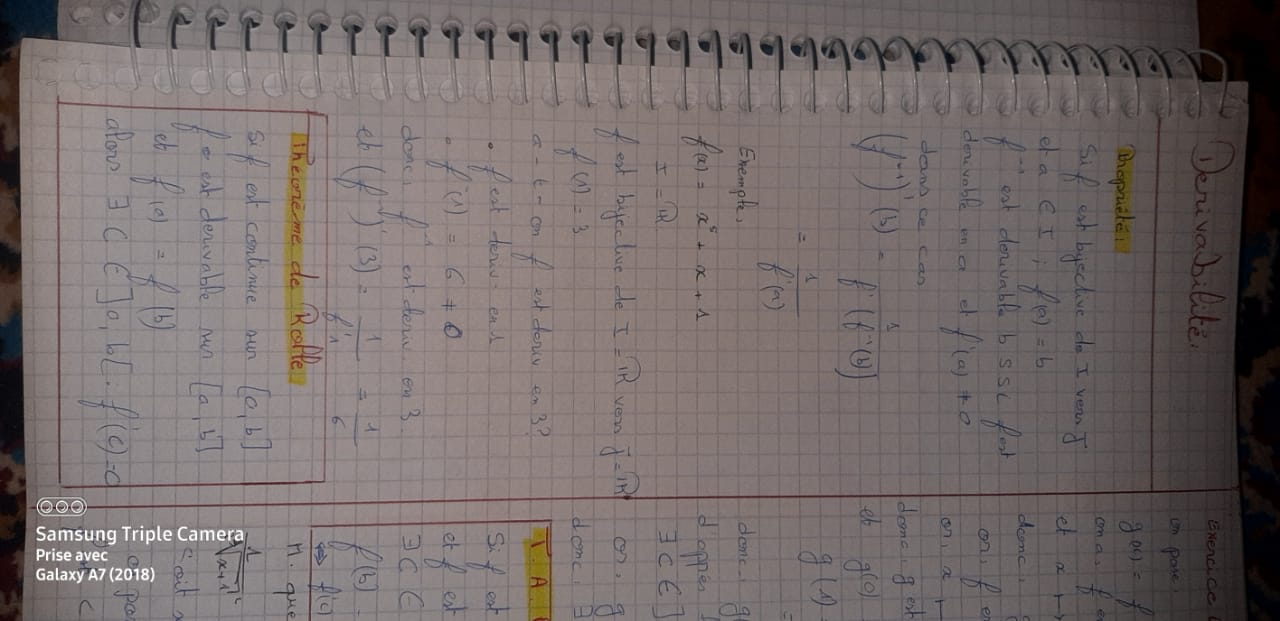 Derivabilité.
Propriété:
Si f est bijective de I vers J
et a ∈ I ; f(a) = b
f⁻¹ est derivable b SSi f est
derivable en a et f'(a) ≠ 0
dans ce cas
(f⁻¹)' (b) = 1 / f'(f⁻¹(b))
= 1 / f'(a)
Exemple.
f(x) = x⁵ + x + 1
I = ℝ
f est bijective de I = ℝ vers J = ℝ
f(1) = 3
a-t-on f est deriv en 3?
• f est deriv en 1
• f'(1) = 6 ≠ 0
donc f⁻¹ est deriv. en 3
et (f⁻¹)' (3) = 1 / f'(1) = 1/6
Théoreme de Rolle
Si f est continue sur [a,b]
f est derivable sur [a,b]
et f(a) = f(b)
alors ∃ C ∈ ]a,b[ : f'(c)=0
Exercice
on pose.
g(x) = f
on a. f
et x
donc.
or, f
or, x
donc. g est
et g(0)
g(1)
=
donc. g
d'après
∃ C ∈ ]
or. g
donc. ∃
T.A.
Si f est
et f est
∃ C ∈
f(b) -
⇔ f'(c)
M. que
1
√x+1
Soit
Samsung Triple Camera
Prise avec
Galaxy A7 (2018)